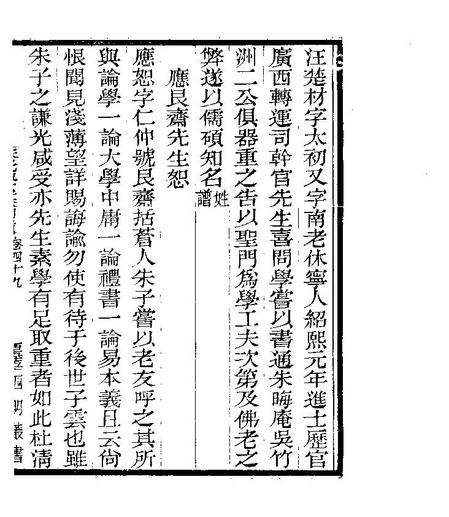 汪楚材字太初又字南老休寧人紹熙元年進士歷官
廣西轉運司幹官先生喜問學嘗以書通朱晦庵吳竹
洲二公俱器重之吿以聖門爲學工夫次第及佛老之
弊遂以儒碩知名姓譜
應艮齋先生恕
應恕字仁仲號艮齋括蒼人朱子嘗以老友呼之其所
與論學一論大學中庸一論禮書一論易本義且云尙
恨聞見淺薄望詳賜誨諭勿使有待于後世子雲也雖
朱子之謙光咸受亦先生素學有足取重者如此杜清
卷四十九
四明叢書